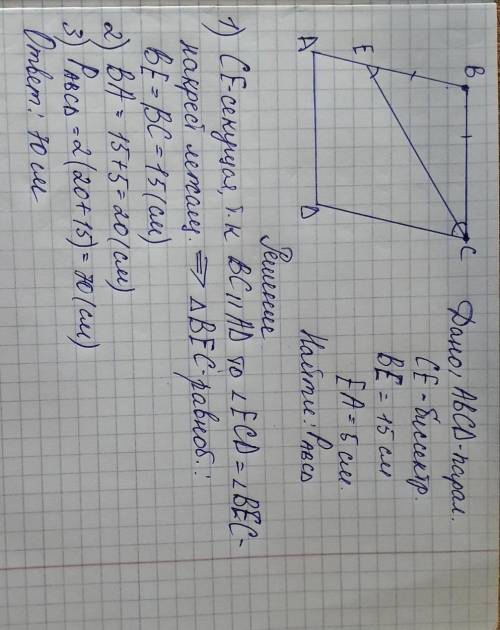 B
C
E
A
D
Дано: ABCD-парал.
CE-биссектр.
BE = 15 см
EA = 5 см.
Найти: P ABCD
Решение
1) CE-секущая, т.к BC || AD то ∠ECD = ∠BEC-
накрест лежащ. ⟹ △BEC-равноб.:
BE = BC = 15 (см)
2) BA = 15+5 = 20 (см)
3) P ABCD = 2 (20+15) = 70 (см)
Ответ: 70 см